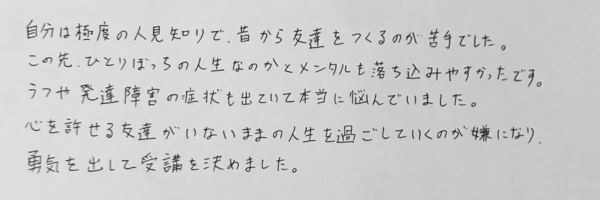 自分は極度の人見知りで、昔から友達をつくるのが苦手でした。
この先、ひとりぼっちの人生なのかとメンタルも落ち込みやすかったです。
うつや発達障害の症状も出ていて本当に悩んでいました。
心を許せる友達がいないままの人生を過ごしていくのが嫌になり、
勇気を出して受講を決めました。